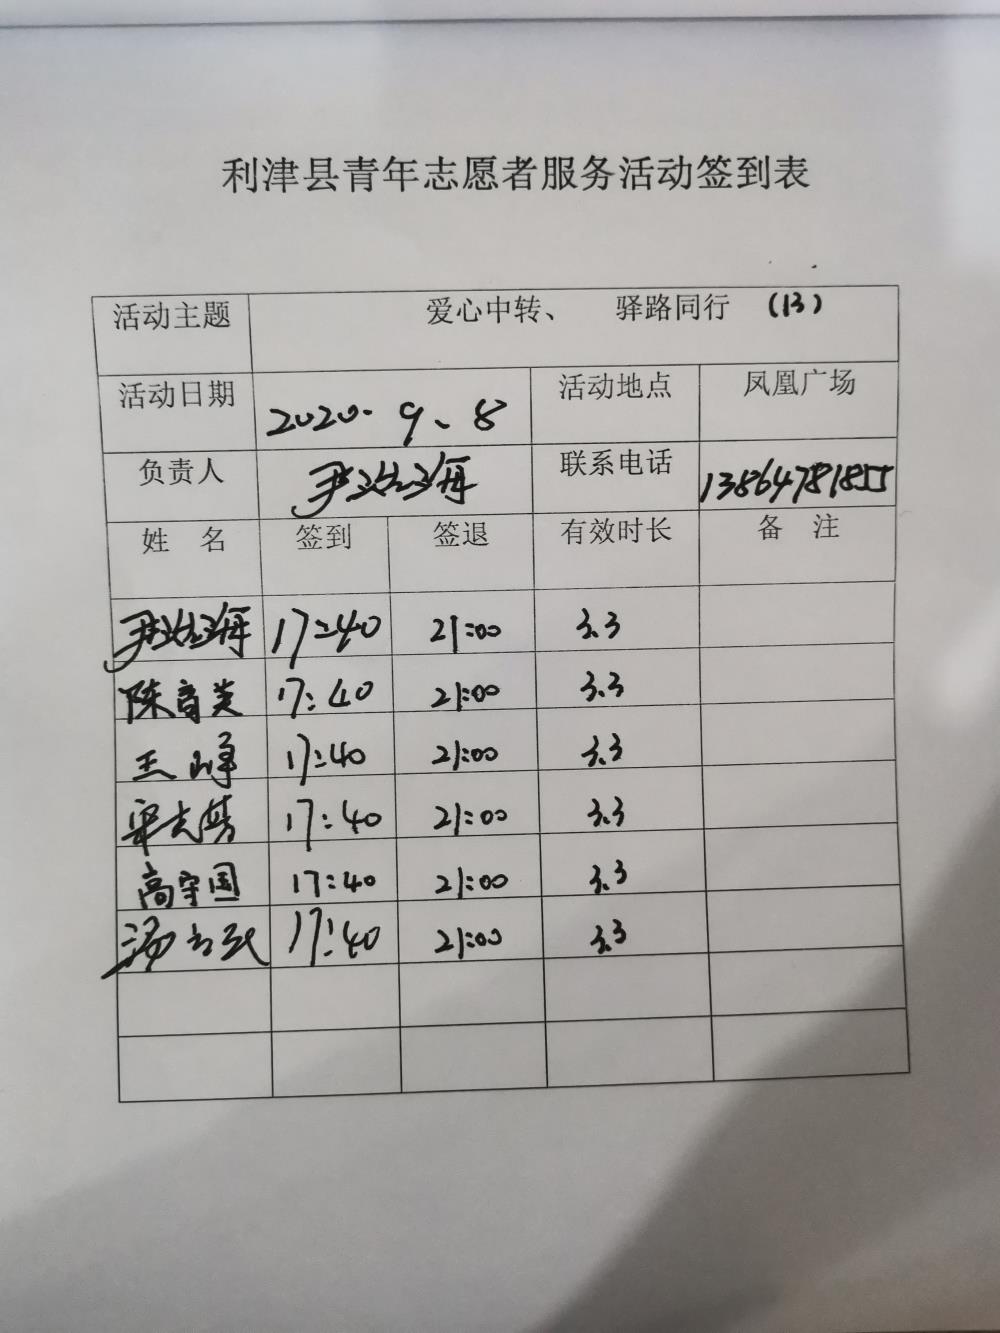 利津县青年志愿者服务活动签到表
活动主题 爱心中转、 驿路同行 (13)
活动日期 2020.9、8 活动地点 凤凰广场
负责人 联系电话 13864781855
姓 名 签到 签退 有效时长 备 注
17:40 21:00 3.3
陈育美 17:40 21:00 3.3
王峰 17:40 21:00 3.3
17:40 21:00 3.3
高守国 17:40 21:00 3.3
17:40 21:00 3.3